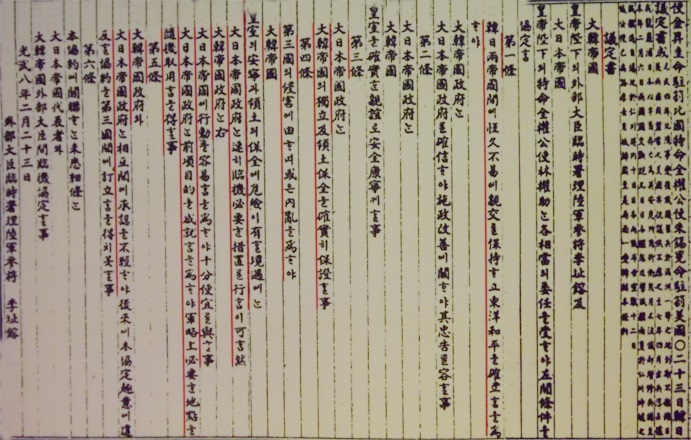 使金昇圭命駐箚比國特命全權公使朱錫冕命駐箚美國〇二十三日韓日
議定書成
議定書
大韓帝國
皇帝陛下의外部大臣臨時署理陸軍參將李址鎔及
大日本帝國
皇帝陛下의特命全權公使林權助ᄂᆞᆫ各相當의委任을受ᄒᆞ야左開條件을
協定ᄒᆞᆷ
第一條
韓日兩帝國間에恒久不易에親交를保持ᄒᆞ고東洋和平을確立ᄒᆞᆷ을爲
ᄒᆞ야
大韓帝國政府ᄂᆞᆫ
大日本帝國政府를確信ᄒᆞ야施政改善에關ᄒᆞ야其忠告를容ᄒᆞᆯ事
第二條
大日本帝國政府ᄂᆞᆫ
大韓帝國
皇室을確實ᄒᆞᆫ親誼로安全康寧케ᄒᆞᆯ事
第三條
大日本帝國政府ᄂᆞᆫ
大韓帝國의獨立及領土保全을確實히保證ᄒᆞᆯ事
第四條
第三國의侵害에由ᄒᆞ며或은內亂을爲ᄒᆞ야
大韓帝國
皇室의安寧과領土의保全에危險이有ᄒᆞᆯ境遇에ᄂᆞᆫ
大日本帝國政府ᄂᆞᆫ速히臨機必要ᄒᆞᆫ措置를行ᄒᆞᆷ이可ᄒᆞᆷ然
大韓帝國政府ᄂᆞᆫ右
大日本帝國에行動을容易ᄒᆞᆷ을爲ᄒᆞ야十分便宜를與ᄒᆞᆯ事
大日本帝國政府ᄂᆞᆫ前項目的을成就ᄒᆞᆷ을爲ᄒᆞ야軍略上必要ᄒᆞᆫ地點을
隨機收用ᄒᆞᆷ을得ᄒᆞᆯ事
第五條
大韓帝國政府와
大日本帝國政府ᄂᆞᆫ相互間에承認을不經ᄒᆞ야後來에本協定趣意에違
反ᄒᆞᆯ協約을第三國間에訂立ᄒᆞᆷ을得치못ᄒᆞᆯ事
第六條
本協約에關聯ᄒᆞᄂᆞᆫ未悉細條ᄂᆞᆫ
大日本帝國代表者와
大韓帝國外部大臣間에臨機協定ᄒᆞᆯ事
光武八年二月二十三日
外部大臣臨時署理陸軍參將 李址鎔